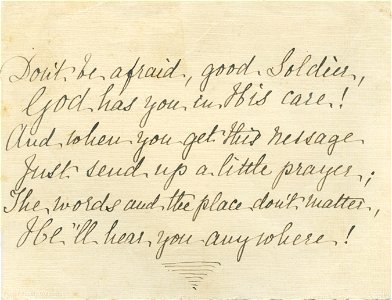 Don't be afraid, good Soldier,
God has you in His care!
And when you get this message
Just send up a little prayer;
The words and the place don't matter,
He'll hear you anywhere!